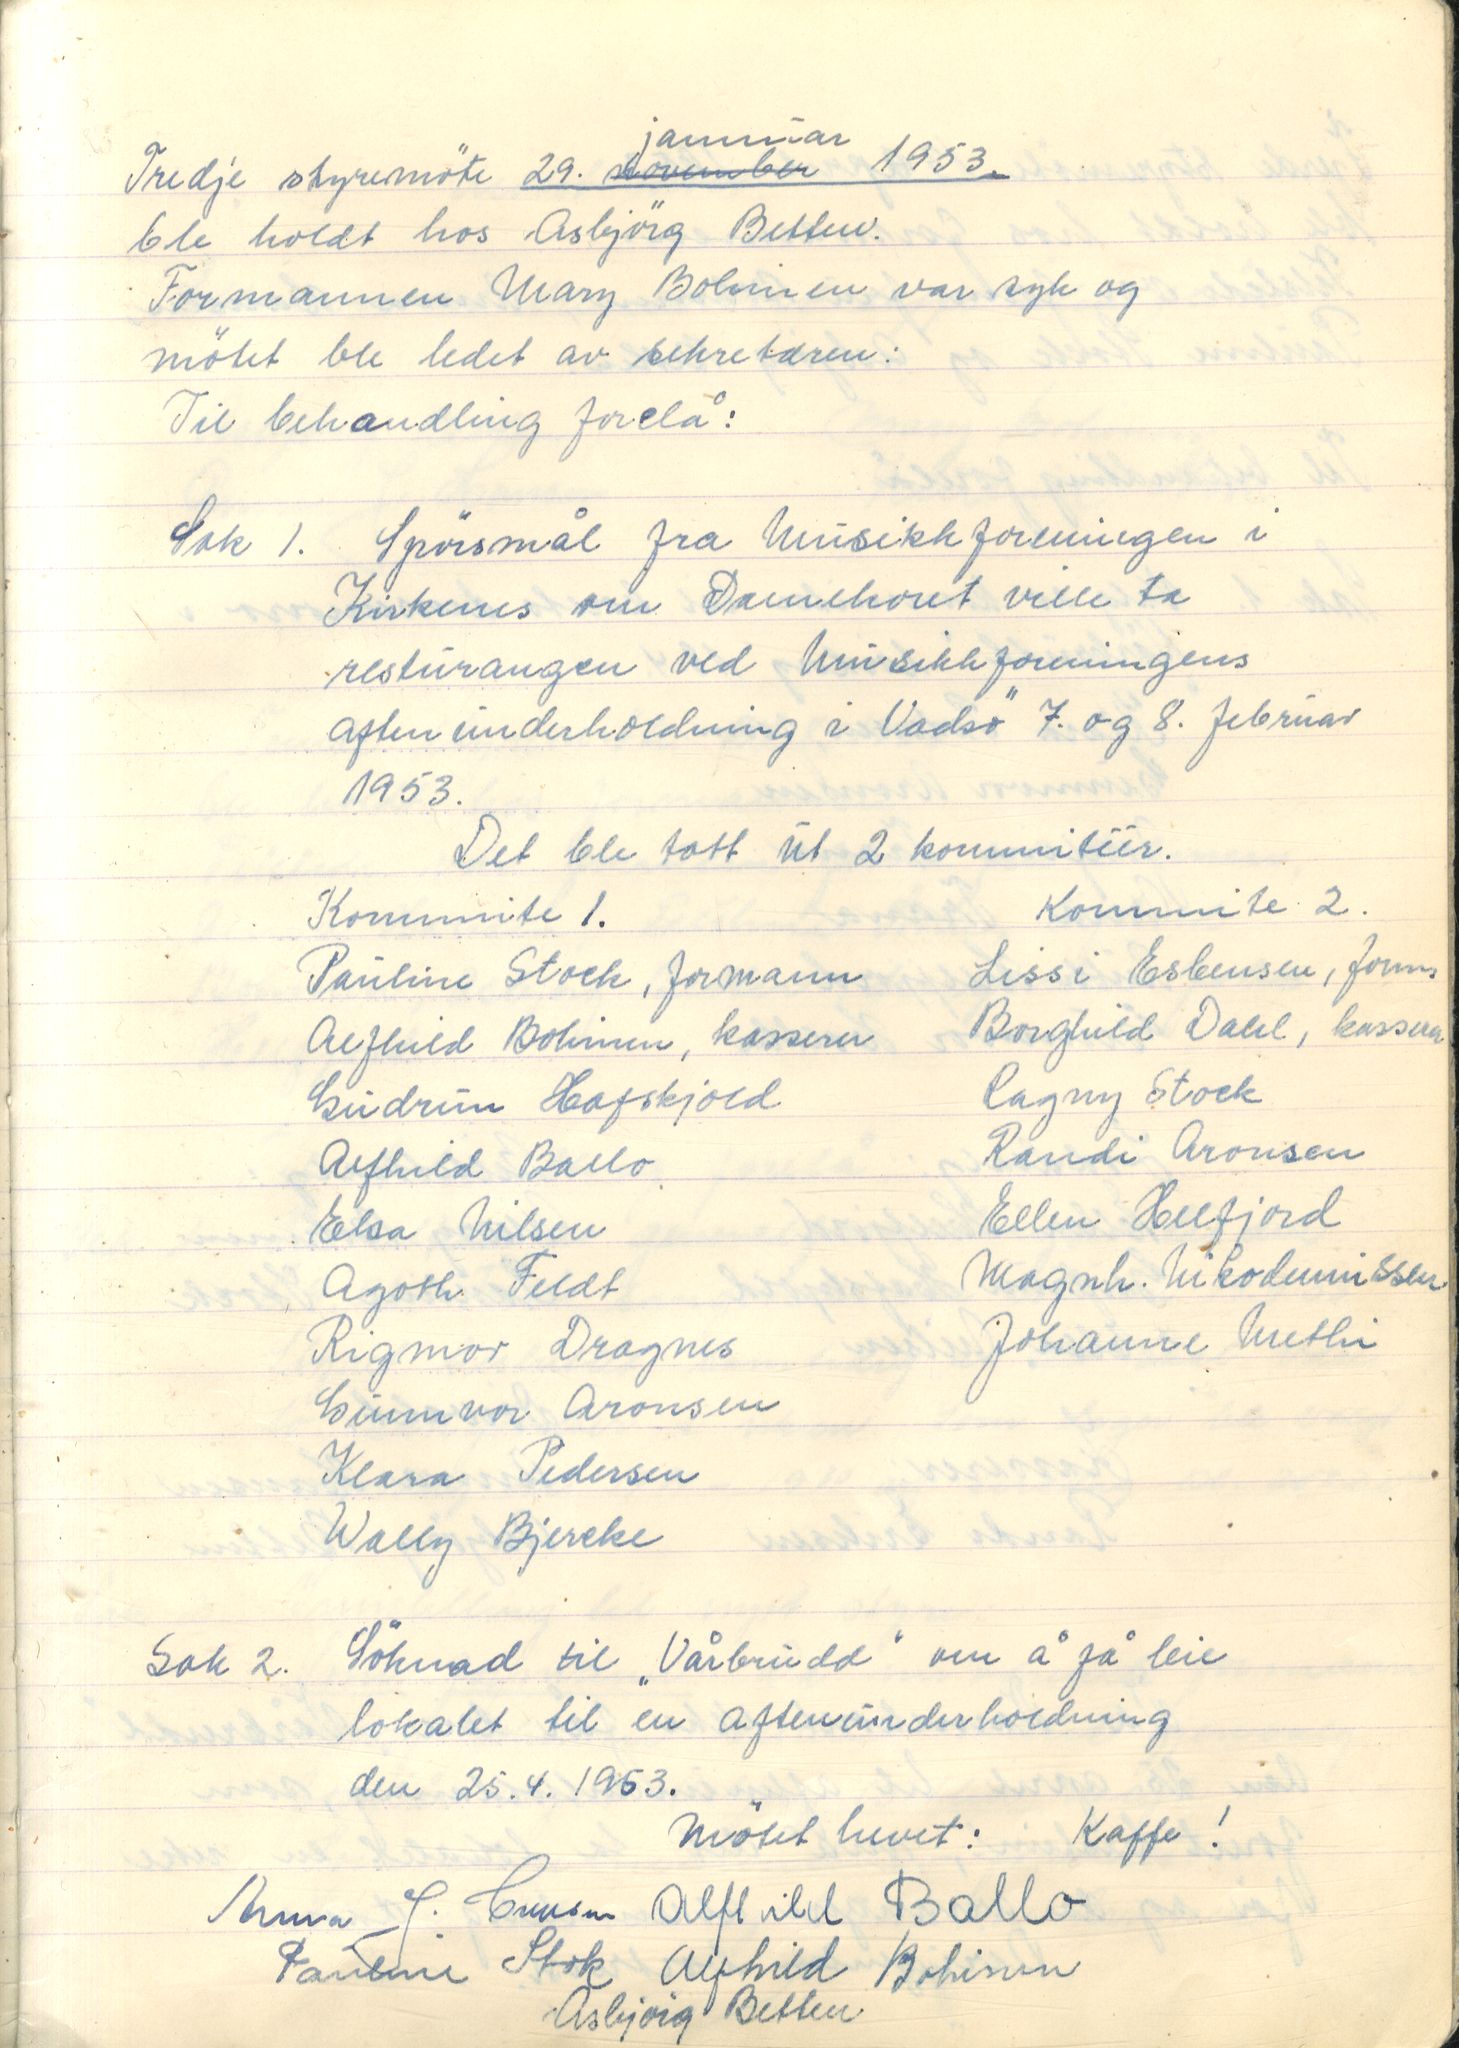 januar
Tredje styremöte 29. november 1953.
ble holdt hos Asbjörg Betten.
Formannen Mary Bohinen var syk og
mötet ble ledet av sekretæren:
Til behandling forelå:
Sak 1. Spörsmål fra Musikkforeningen i
Kirkenes om Damekoret ville ta
resturangen ved Musikkforeningens
aftenunderholdning i Vadsö 7. og 8. februar
1953.
Det ble tatt ut 2 kommitéer.
Kommite 1. Kommite 2.
Pauline Stock, formann Lissi Esbensen, form
Alfhild Bohinen, kasserer Borghild Dahl, kasserer
Gudrun Hafskjold Ragny Stock
Alfhild Ballo Randi Aronsen
Elsa Nilsen Ellen Hellfjord
Agoth Feldt Magnh. Nikodemissen
Rigmor Dragnes Johanne Methi
Gunnvor Aronsen
Klara Pedersen
Wally Bjercke
Sak 2. Söknad til "Vårbrudd" om å få leie
lokalet til en aftenunderholdning
den 25.4.1953.
Mötet hevet: Kaffe!
Anna J. Alfhild Ballo
Pauline Stok Alfhild Bohinen
Asbjörg Betten